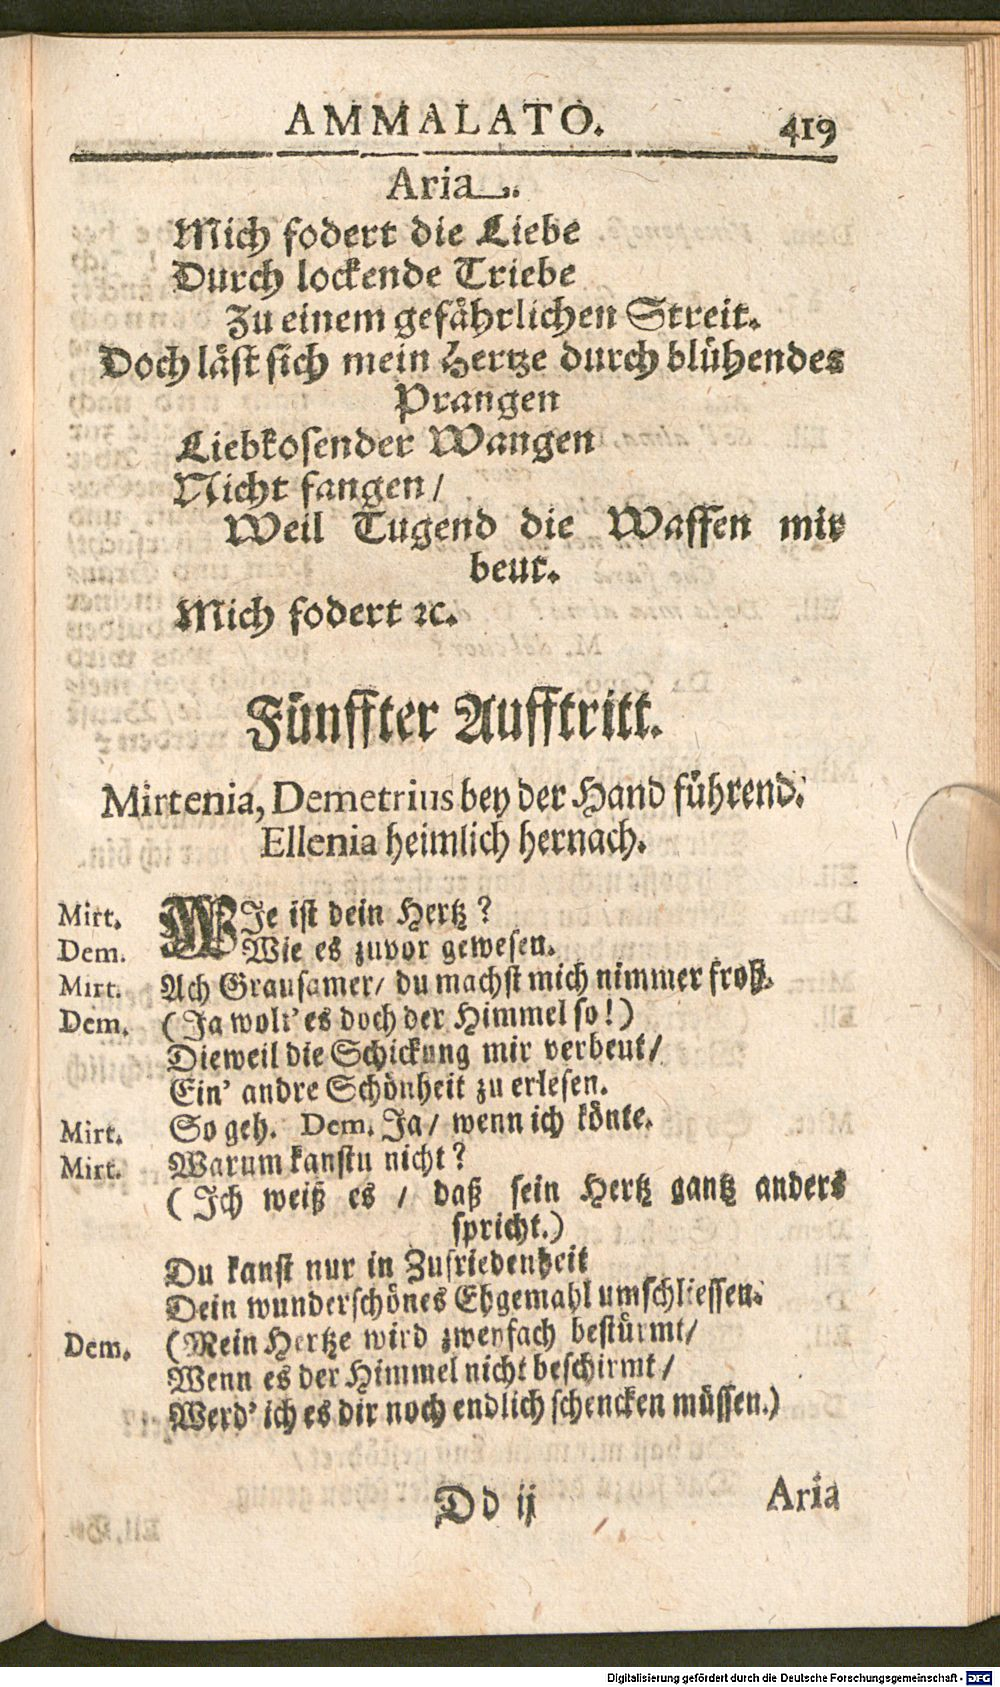 AMMALATO. 419
Aria.
Mich fodert die Liebe
Durch lockende Triebe
Zu einem gefährlichen Streit.
Doch läst sich mein Hertze durch blühendes
Prangen
Liebkosender Wangen
Nicht fangen/
Weil Tugend die Waffen mir
beut.
Mich fodert ꝛc.
Fünffter Aufftritt.
Mirtenia, Demetrius bey der Hand führend.
Ellenia heimlich hernach.
Mirt. WJe ist dein Hertz?
Dem. Wie es zuvor gewesen.
Mirt. Ach Grausamer/ du machst mich nimmer froh.
Dem. (Ja wolt' es doch der Himmel so!)
Dieweil die Schickung mir verbeut/
Ein' andre Schönheit zu erlesen.
Mirt. So geh. Dem. Ja/ wenn ich könte.
Mirt. Warum kanstu nicht?
(Ich weiß es / daß sein Hertz gantz anders
spricht.)
Du kanst nur in Zufriedenheit
Dein wunderschönes Ehgemahl umschliessen.
Dem. (Mein Hertze wird zweyfach bestürmt/
Wenn es der Himmel nicht beschirmt/
Werd' ich es dir noch endlich schencken müssen.)
Dd ij Aria
Digitalisierung gefördert durch die Deutsche Forschungsgemeinschaft - DFG